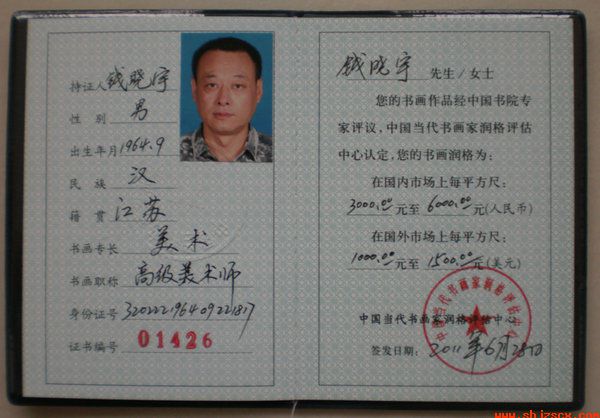 持证人 钱晓宇
性别 男
出生年月 1964.9
民族 汉
籍贯 江苏
书画专长 美术
书画职称 高级美术师
身份证号 320222196409221817
证书编号 01426
钱晓宇 先生/女士
您的书画作品经中国书院专
家评议，中国当代书画家润格评估
中心认定，您的书画润格为：
在国内市场上每平方尺：
3000.00元至 6000.00元(人民币)
在国外市场上每平方尺：
1000.00元至 1500.00元(美元)
中国当代书画家润格评估中心
中国当代书画家润格评估中心
签发日期：2011年6月28日